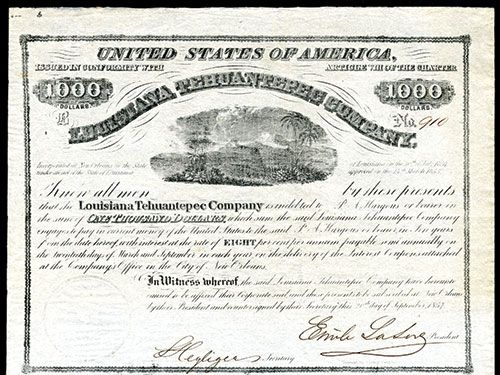 UNITED STATES OF AMERICA,
ISSUED IN CONFORMITY WITH ARTICLE VIII OF THE CHARTER
1000 1000
DOLLARS. DOLLARS.
LOUISIANA TEHUANTEPEC COMPANY.
No. 910
Incorporated at New Orleans in the State of Louisiana on the
under an act of the State of Louisiana approved on the
Know all men by these presents
that the Louisiana Tehuantepec Company is indebted to P. A. Hargous or bearer in
the sum of ONE THOUSAND DOLLARS, which sum the said Louisiana Tehuantepec Company
engages to pay in current money of the United States to the said P. A. Hargous or bearer, in Ten years
from the date hereof, with interest at the rate of EIGHT per cent per annum payable semi annually on
the twentieth days of March and September in each year, on the delivery of the Interest Coupons attached
at the Company's Office in the City of New Orleans.
In Witness whereof, the said Louisiana Tehuantepec Company have hereunto
caused to be affixed their Corporate seal and these presents to be subscribed at New Orleans
by their President and countersigned by their Secretary this day of September 1857.
President
Secretary